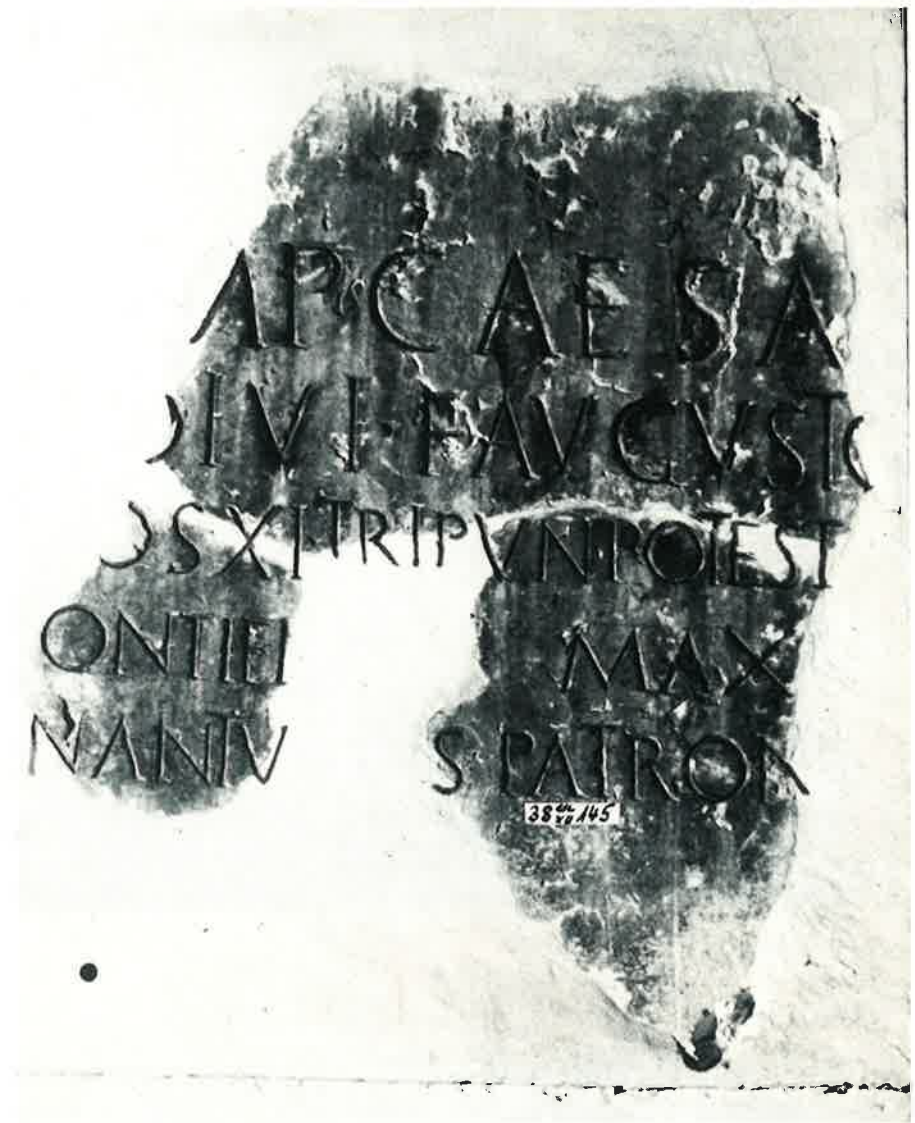 MP CAESA
DIVI F AVGVSTO
OS XI TRIBVN POTEST
ONTIFI MAX
MANTV S PATRON
38 145